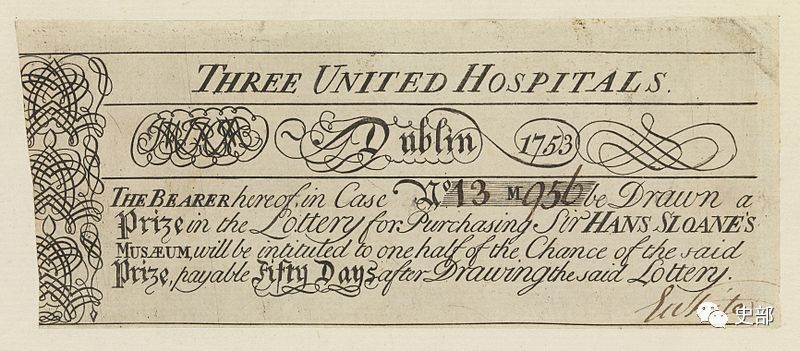 THREE UNITED HOSPITALS.
Dublin 1753
THE BEARER hereof, in Case No 13 M 956 be Drawn a
Prize in the Lottery for Purchasing Sir HANS SLOANE'S
MUSÆUM, will be intituled to one half of the Chance of the said
Prize, payable Fifty Days after Drawing the said Lottery.
史部